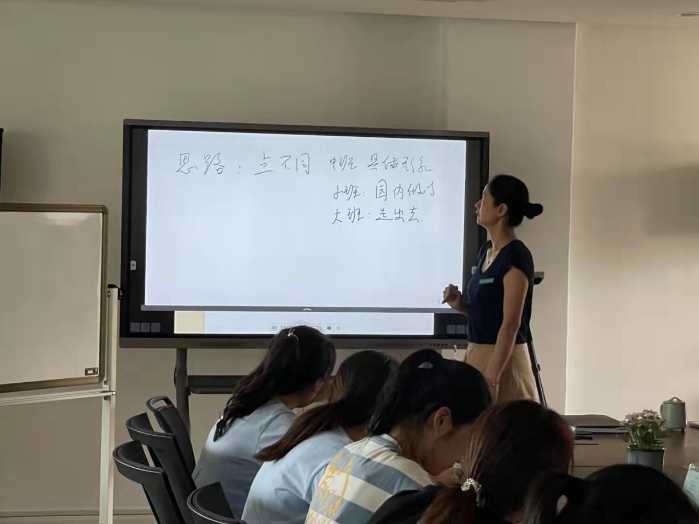 思路：点不同 中班 具体形象
小班：园内
大班：走出去